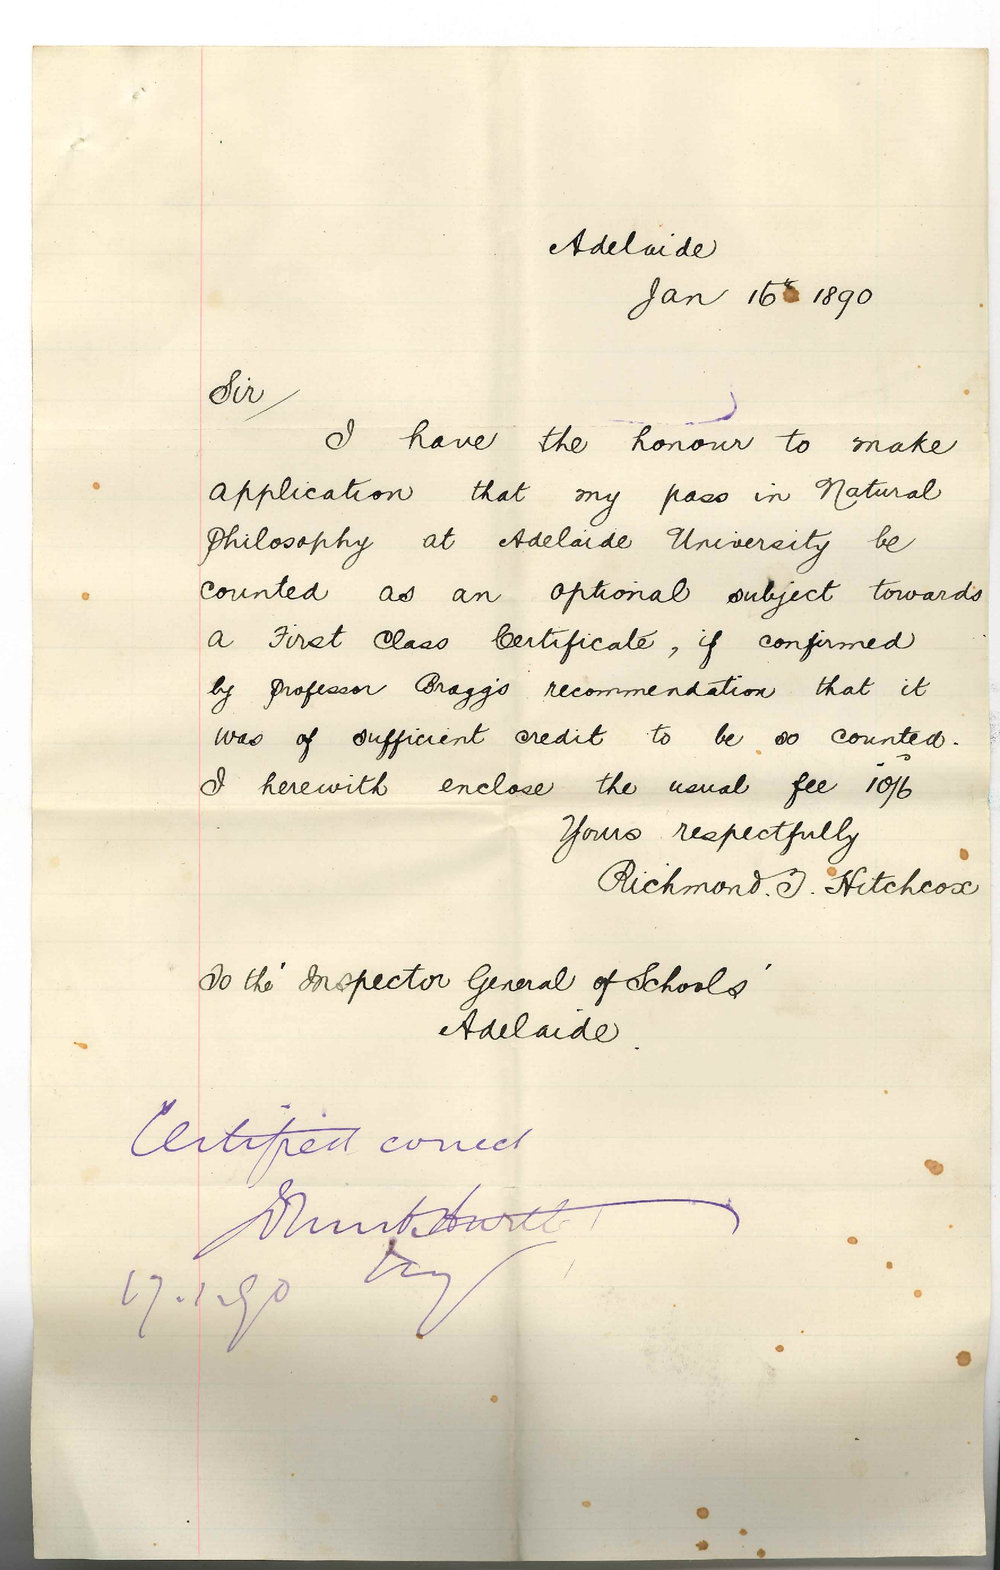 Adelaide
Jan 16th 1890
Sir/
I have the honour to make
application that my pass in Natural
Philosophy at Adelaide University be
counted as an optional subject towards
a First Class Certificate, if confirmed
by Professor Bragg's recommendation that it
was of sufficient credit to be so counted.
I herewith enclose the usual fee 10/6
Yours respectfully
Richmond. J. Hitchcox
To the 'Inspector General of Schools'
Adelaide.
Certified correct
17.1.90